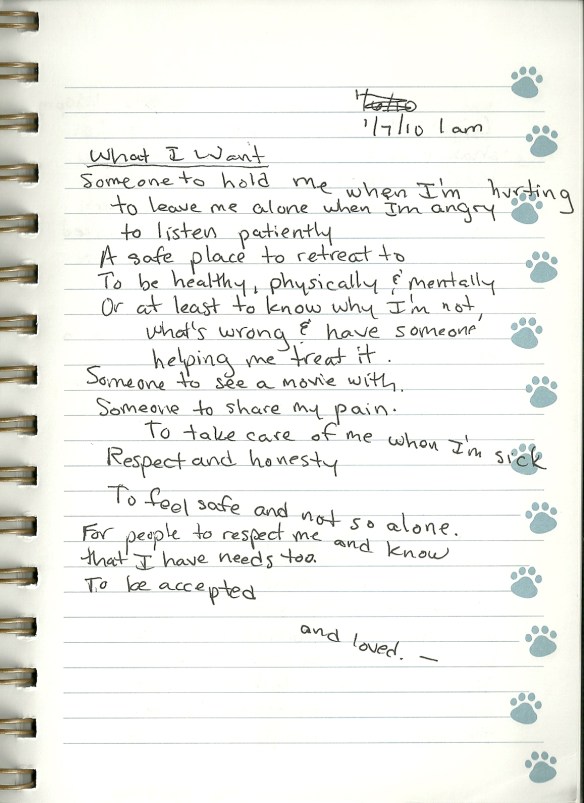 1/7/10 1 am
What I Want
Someone to hold me when I'm hurting
to leave me alone when I'm angry
to listen patiently
A safe place to retreat to
To be healthy, physically & mentally
Or at least to know why I'm not,
what's wrong & have someone
helping me treat it.
Someone to see a movie with.
Someone to share my pain.
To take care of me when I'm sick
Respect and honesty
To feel safe and not so alone.
For people to respect me and know
that I have needs too.
To be accepted
and loved. —